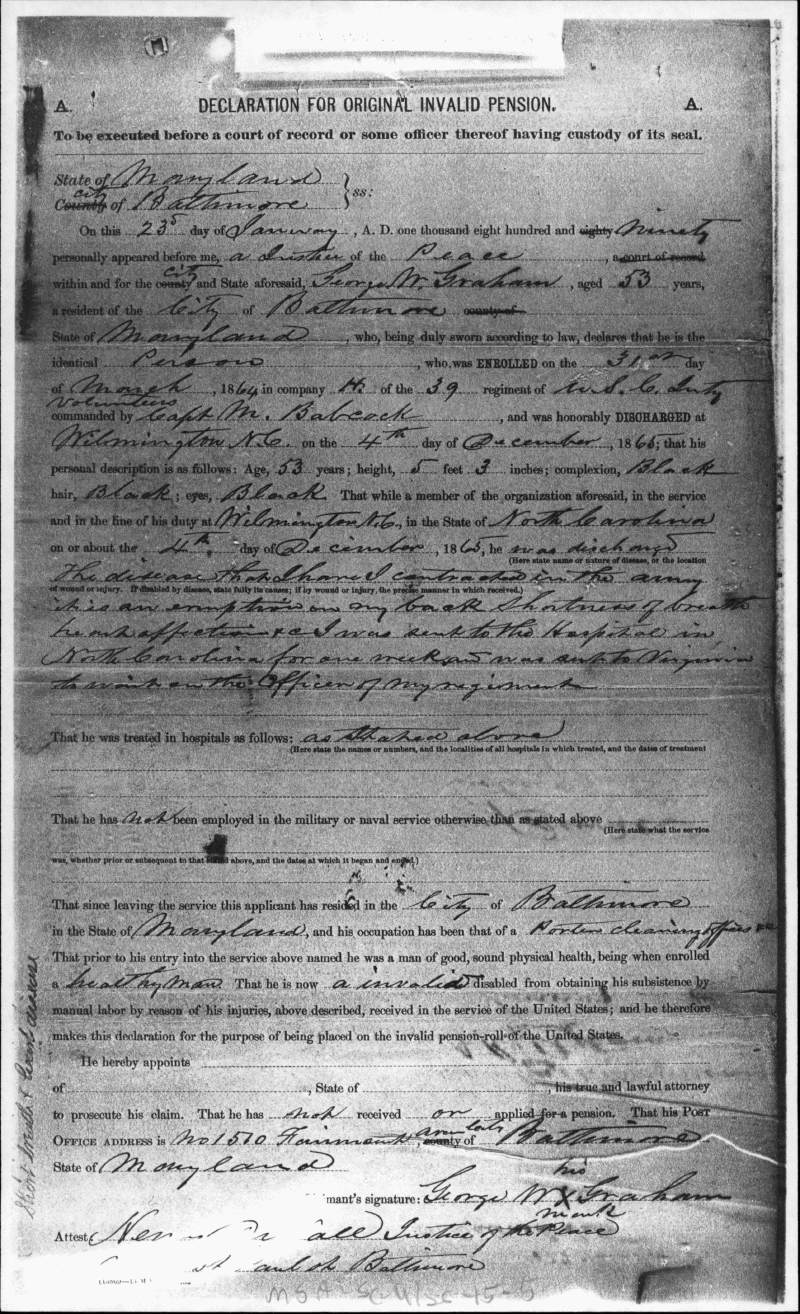 A. DECLARATION FOR ORIGINAL INVALID PENSION. A.
To be executed before a court of record or some officer thereof having custody of its seal.
State of Maryland } ss:
city
County of Baltimore
On this 23d day of January, A. D. one thousand eight hundred and eighty Ninety
personally appeared before me, a Justice of the Peace, a court of record
city
within and for the county and State aforesaid, George W. Graham, aged 53 years,
a resident of the City of Baltimore county of
State of Maryland, who, being duly sworn according to law, declares that he is the
identical Person, who was ENROLLED on the 31st day
of March, 1864 in company H. of the 39 regiment of U. S. C. Infty
Volunteers
commanded by Capt M. Babcock, and was honorably DISCHARGED at
Wilmington N.C. on the 4th day of December, 1865; that his
personal description is as follows: Age, 53 years; height, 5 feet 3 inches; complexion, Black
hair, Black; eyes, Black. That while a member of the organization aforesaid, in the service
and in the line of his duty at Wilmington N.C., in the State of North Carolina
on or about the 4th. day of December, 1865, he was discharged
(Here state name or nature of disease, or the location
The disease that I have I contracted in the army
of wound or injury. If disabled by disease, state fully its causes; if by wound or injury, the precise manner in which received.)
it is an eruption on my back Shortness of breath
heart affection &c I was sent to the Hospital in
North Carolina for one week and was sent to Virginia
to wait on the Officer of my regiment
That he was treated in hospitals as follows: as Stated above
(Here state the names or numbers, and the localities of all hospitals in which treated, and the dates of treatment
That he has not been employed in the military or naval service otherwise than as stated above
(Here state what the service
was, whether prior or subsequent to that above, and the dates at which it began and ended.)
That since leaving the service this applicant has resided in the City of Baltimore
in the State of Maryland, and his occupation has been that of a Porter cleaning offices &c
That prior to his entry into the service above named he was a man of good, sound physical health, being when enrolled
a healthy man. That he is now a invalid disabled from obtaining his subsistence by
manual labor by reason of his injuries, above described, received in the service of the United States; and he therefore
makes this declaration for the purpose of being placed on the invalid pension-roll of the United States.
Short breath & heart disease
He hereby appoints
of , State of , his true and lawful attorney
to prosecute his claim. That he has not received or applied for a pension. That his POST
OFFICE ADDRESS is No 1510 Fairmount, county of Baltimore.
State of Maryland
his
mant's signature: George W X Graham
mark
Attest Justice of the Peace
Baltimore
MSA SC 4126-45-5